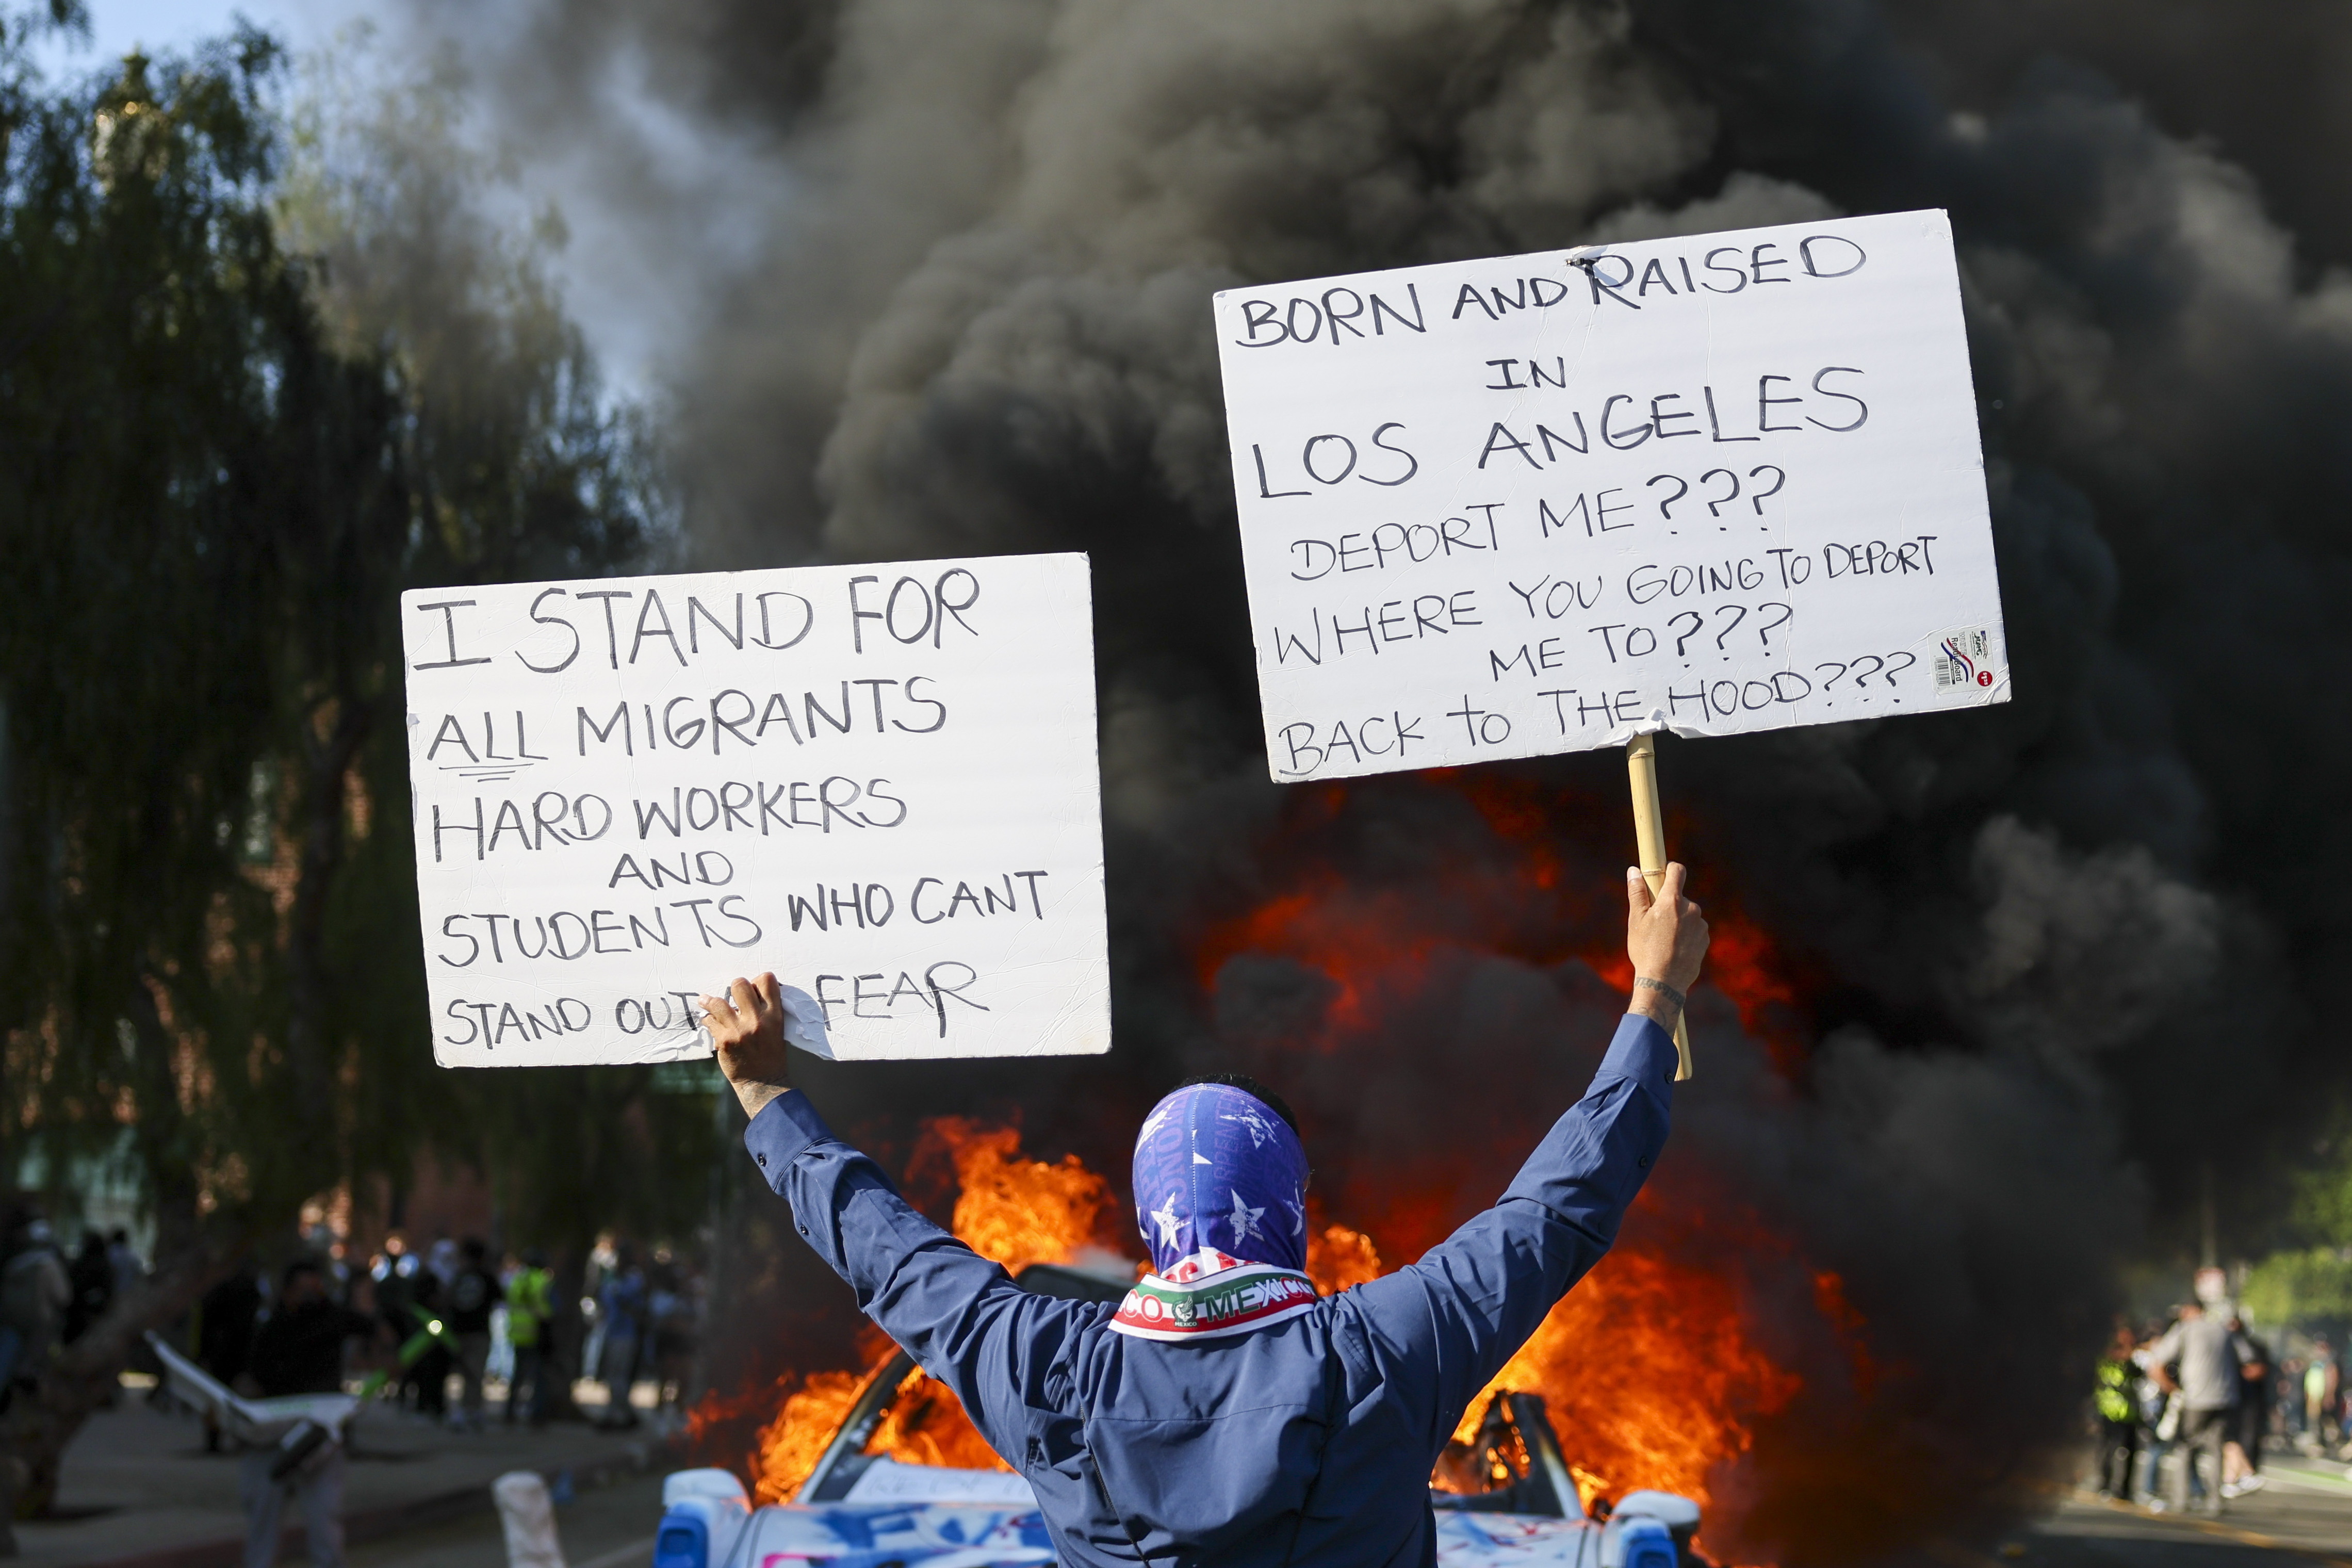 I STAND FOR
ALL MIGRANTS
HARD WORKERS
AND
STUDENTS WHO CANT
STAND OUT FEAR
BORN AND RAISED
IN
LOS ANGELES
DEPORT ME???
WHERE YOU GOING TO DEPORT
ME TO???
BACK to THE HOOD???
CO MEXICO
MEXICO